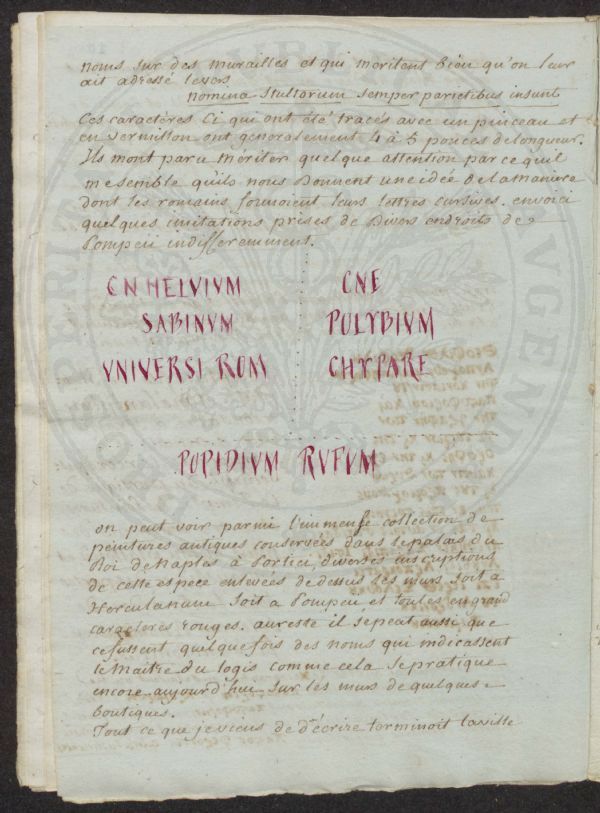 noms sur des murailles et qui méritent bien qu'on leur
ait adressé levers
nomina stultorum semper parietibus insunt
Ces caractères ci qui ont été tracés avec un pinceau et
en vermillon ont generalement 4 à 5 pouces delongueur.
Ils mont paru mériter quelque attention parcequil
mesemble qu'ils nous Donnent une idée delamaniere
dont les romains formoient leurs lettres cursives. envoici
quelques imitations prises de Divers endroits de
Pompeii indifferemment.
CN HELVIVM
SABINVM
VNIVERSI ROM
CNE
POLYBIVM
CHYPARE
POPIDIVM RVFVM
on peut voir parmi l'immense collection de
peintures antiques conservées dans le palais du
Roi de Naples à Portici, diverses inscriptions
de cette espece enlevées dedessus les murs soit a
Herculanum soit a Pompeii et toutes en grand
caractères rouges. aureste il sepeat aussi que
cefussent quelquefois des noms qui indicassent
le Maitre du logis comme cela sepratique
encore aujourd'hui sur les murs de quelques
boutiques.
Tout ce que jeviens de décrire terminoit laville
PROSPERITÉ